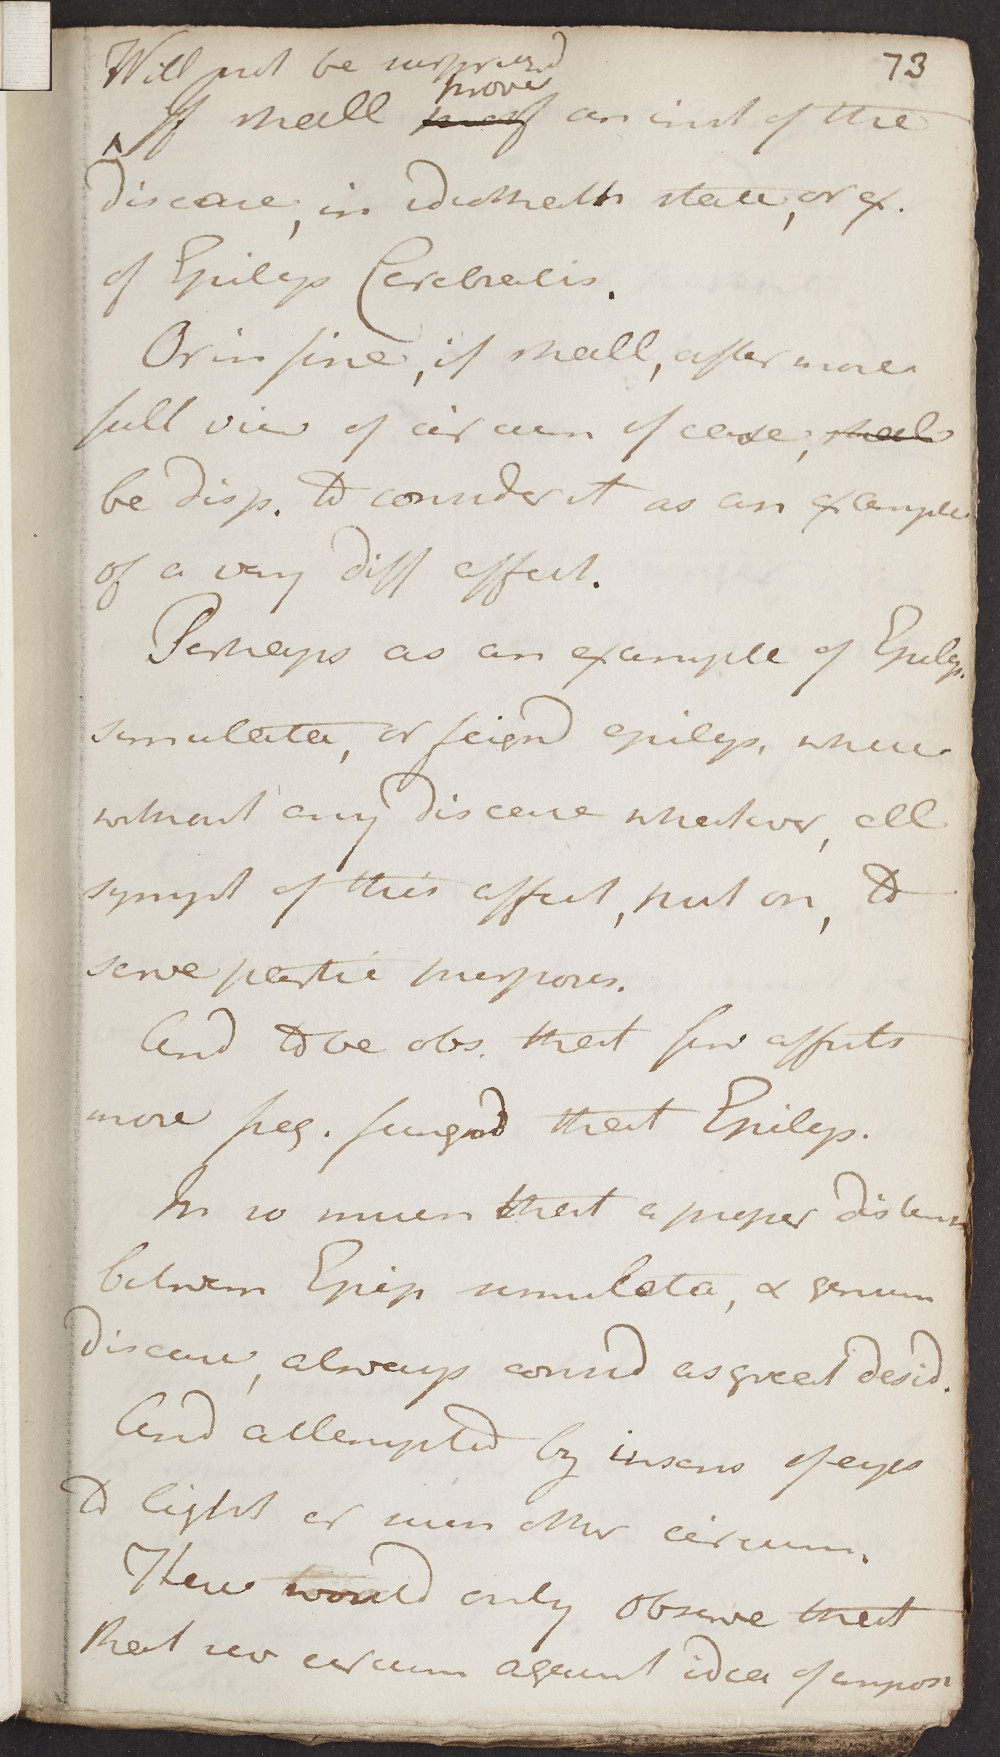 73
Will not be surprized
^ If shall proof prove an inst of the
disease, in idiopath state, or ex.
of Epileps Cerebralis.
Or in fine, if shall, after more
full view of circum of case, shal
be disp. to consider it as an example
of a very diff affect.
Perhaps as an example of Epilep.
simulata, or feignd epileps. where
without any disease whatever, all
sympt of this affect, put on, to
serve partic purposes.
And to be obs. that few affects
more freq. feignd that Epileps.
In so much that a proper distinc
between Epip simulata, & genuin
disease, always consid as great desid.
And attempted by insens of eyes
to light or such other circum.
Here would only observe that
that no circum against idea of impos